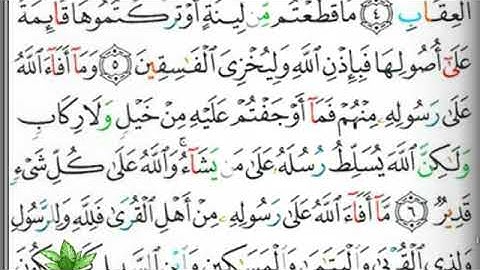 ٱلۡعِقَابِ ٤ مَا قَطَعۡتُم مِّن لِّينَةٍ أَوۡ تَرَكۡتُمُوهَا قَآئِمَةً
عَلَىٰٓ أُصُولِهَا فَبِإِذۡنِ ٱللَّهِ وَلِيُخۡزِيَ ٱلۡفَٰسِقِينَ ٥ وَمَآ أَفَآءَ ٱللَّهُ
عَلَىٰ رَسُولِهِۦ مِنۡهُمۡ فَمَآ أَوۡجَفۡتُمۡ عَلَيۡهِ مِنۡ خَيۡلٖ وَلَا رِكَابٖ
وَلَٰكِنَّ ٱللَّهَ يُسَلِّطُ رُسُلَهُۥ عَلَىٰ مَن يَشَآءُۚ وَٱللَّهُ عَلَىٰ كُلِّ شَيۡءٖ
قَدِيرٞ ٦ مَّآ أَفَآءَ ٱللَّهُ عَلَىٰ رَسُولِهِۦ مِنۡ أَهۡلِ ٱلۡقُرَىٰ فَلِلَّهِ وَلِلرَّسُولِ
وَلِذِي ٱلۡقُرۡبَىٰ وَٱلۡيَتَٰمَىٰ وَٱلۡمَسَٰكِينِ وَٱبۡنِ ٱلسَّبِيلِ